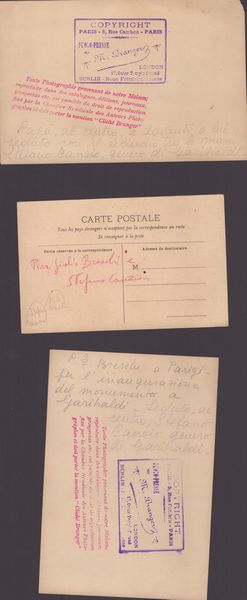 COPYRIGHT
PARIS - 5, Rue Cambon - PARIS
PHOTO-PRESSE
M. Branger
LONDON
17, Outer Temple Strand
BERLIN
Toute Photographie provenant de notre Maison,
reproduite dans des catalogues, éditions, journaux,
prospectus etc. est passible du droit de reproduction
fixé par la Chambre Syndicale des Auteurs Photo-
graphes et doit porter la mention "Cliché Branger"
Papà, al centro è davanti a lui
seduto con il
Stefano Canzio
CARTE POSTALE
Tous les pays étrangers n'acceptent pas la correspondance au recto
Se renseigner à la poste
Partie réservée à la correspondance
Adresse du destinataire
M
Pier Giulio Breschi e
Stefano Canzio
P G Breschi a Parigi-
per l'inaugurazione
del monumento a
Garibaldi Seduto, al
centro, Stefano
Canzio genero
di Garibaldi-
Toute Photographie provenant de notre Maison,
reproduite dans des catalogues, éditions, journaux,
prospectus etc. est passible du droit de reproduction
fixé par la Chambre Syndicale des Auteurs Photo-
graphes et doit porter la mention "Cliché Branger"
COPYRIGHT
PARIS - 5, Rue Cambon - PARIS
PHOTO-PRESSE
M. Branger
LONDON
17, Outer Temple Strand
BERLIN